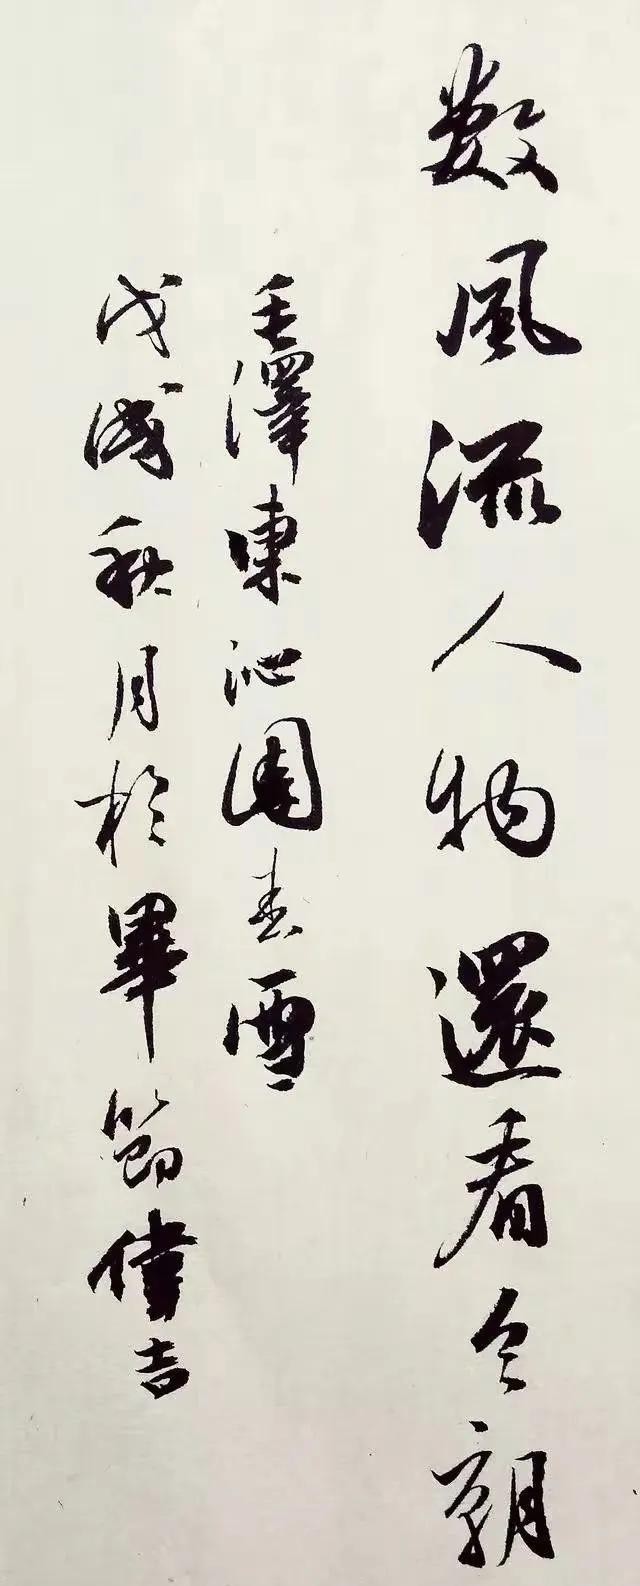 數風流人物還看今朝
毛澤東沁園春雪
戊戌秋月於畢節偉吉